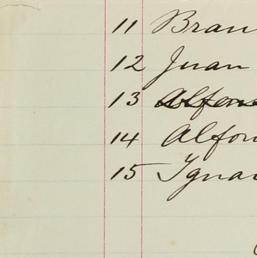 11 Bran
12 Juan
13 Alfons
14 Alfon
15 Ignac